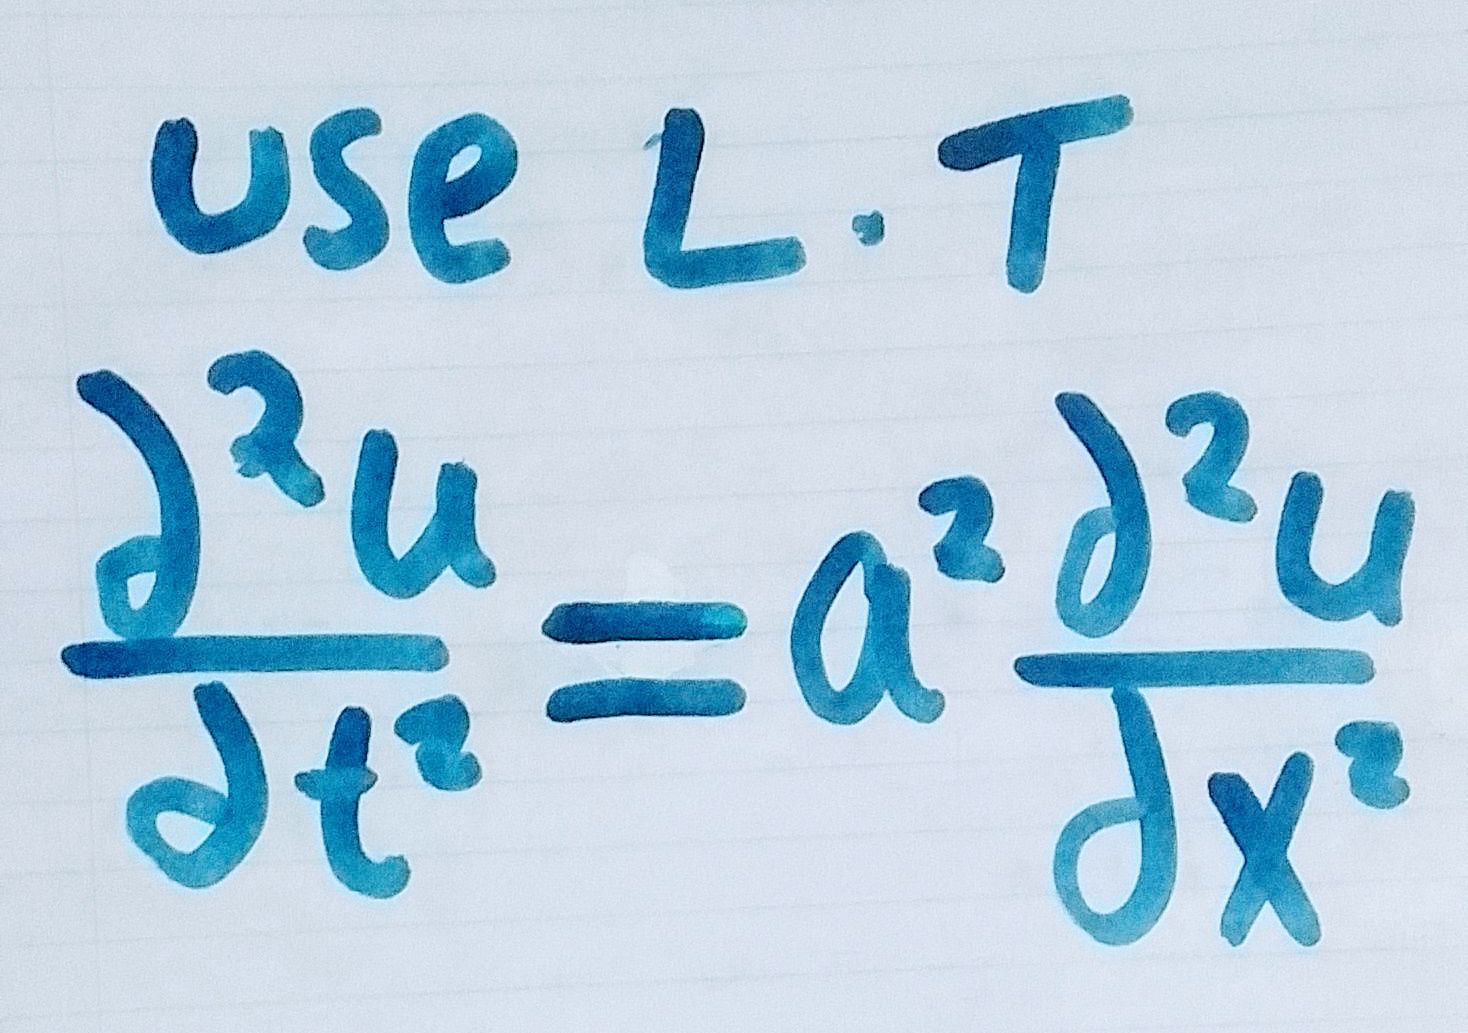 use L.T
∂²u/∂t² = a² ∂²u/∂x²